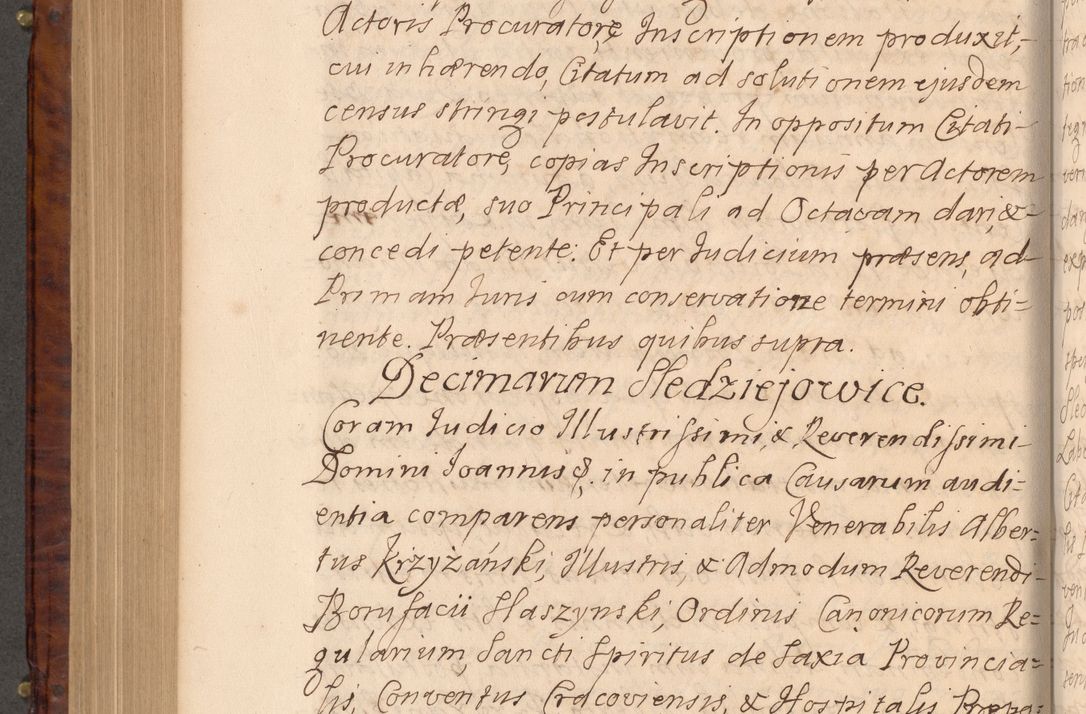 Actoris Procuratore Inscriptionem produxit,
cui inhærendo, Citatum ad solutionem ejusdem
census stringi postulavit. In oppositum Citati
Procuratore, copias Inscriptionis per Actorem
productæ, suo Principali ad Octavam dari &
concedi petente. Et per Iudicium præsens, ad
Primam Iuris cum conservatione termini obti=
nente. Præsentibus quibus supra.
Decimarum Sledziejowice.
Coram Iudicio Illustrissimi, & Reverendissimi
Domini Ioannis &. in publica Causarum audi=
entia comparens personaliter Venerabilis Alber=
tus Krzyżański, Illustris & Admodum Reverendi
Bonifacii Staszynski, Ordinis Canonicorum Re=
gularium, Sancti Spiritus de Saxia Provincia=
lis, Conventus Cracoviensis, & Hospitalis Præpo=